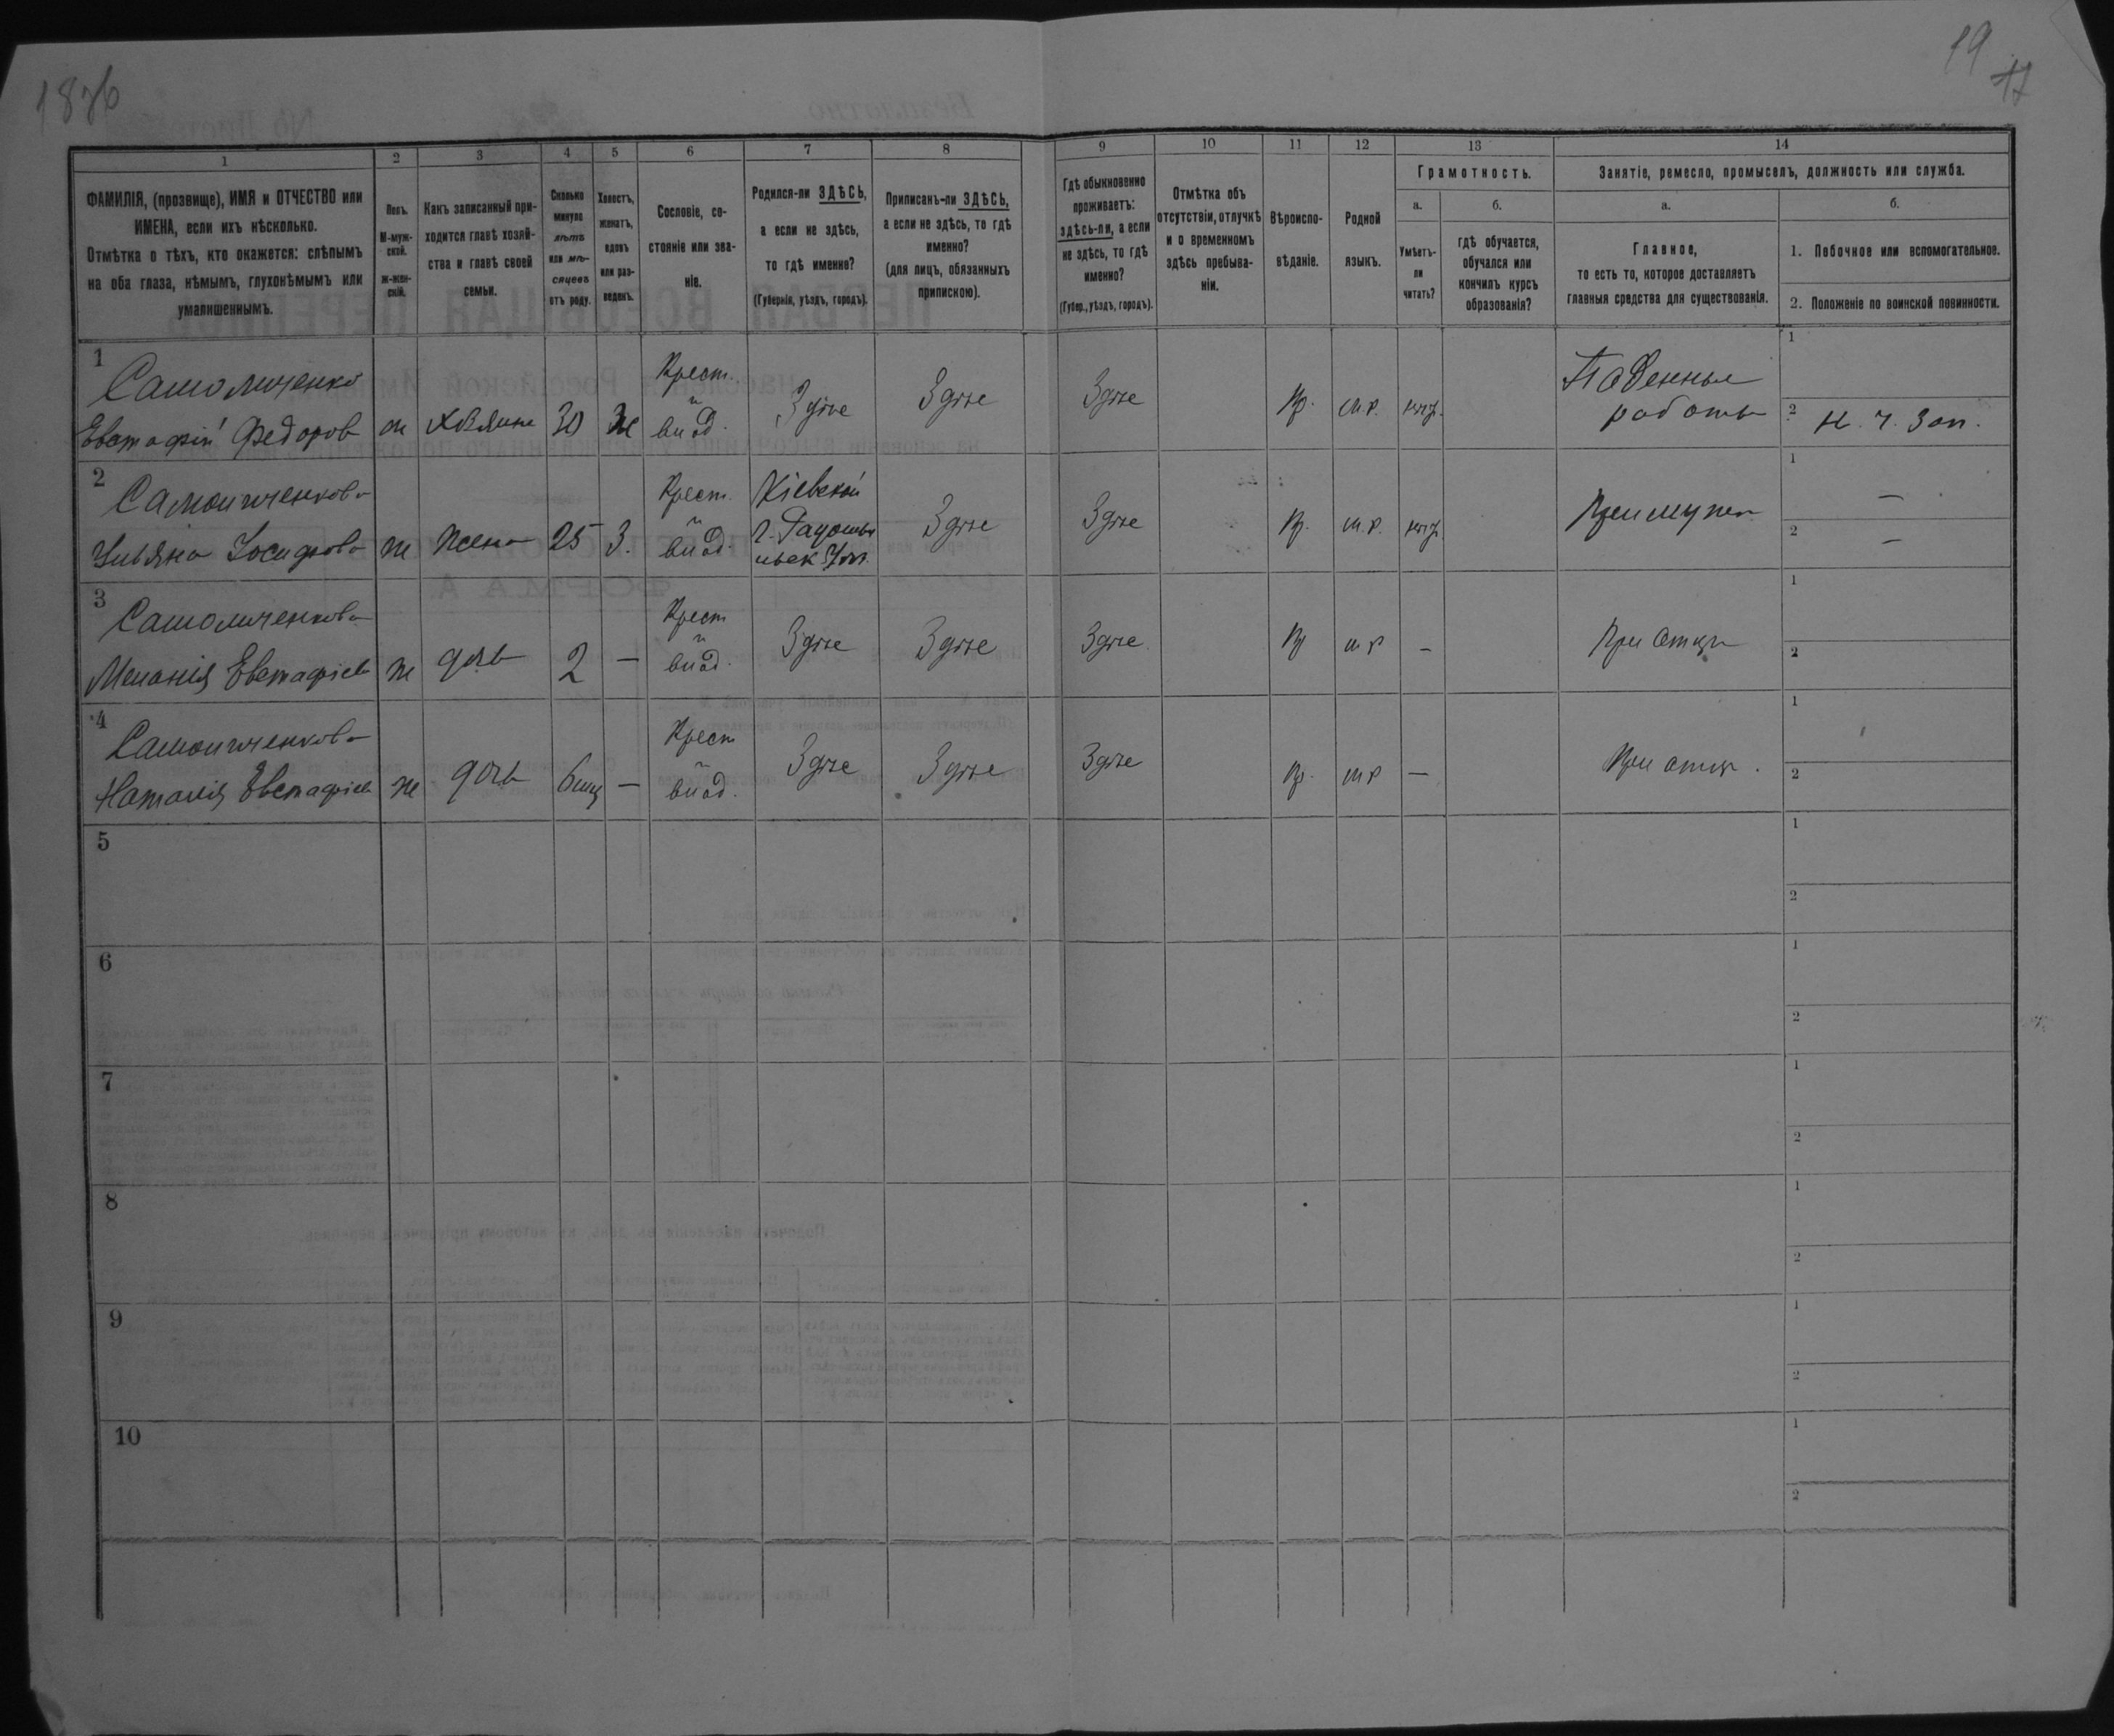 1876
19
17
1
2
3
4
5
6
7
8
9
10
11
12
13
14
ФАМИЛІЯ, (прозвище), ИМЯ и ОТЧЕСТВО или
ИМЕНА, если ихъ нѣсколько.
Отмѣтка о тѣхъ, кто окажется: слѣпымъ
на оба глаза, нѣмымъ, глухонѣмымъ или
умалишеннымъ.
Полъ.
М-муж-
ской.
ж-жен-
скій.
Какъ записанный при-
ходится главѣ хозяй-
ства и главѣ своей
семьи.
Сколько
минуло
лѣтъ
или мѣ-
сяцевъ
отъ роду.
Холостъ,
женатъ,
вдовъ
или раз-
веденъ.
Сословіе, со-
стояніе или зва-
ніе.
Родился-ли ЗДѢСЬ,
а если не здѣсь,
то гдѣ именно?
(Губернія, уѣздъ, городъ).
Приписанъ-ли ЗДѢСЬ,
а если не здѣсь, то гдѣ
именно?
(для лицъ, обязанныхъ
припискою).
Гдѣ обыкновенно
проживаетъ:
здѣсь-ли, а если
не здѣсь, то гдѣ
именно?
(Губер., уѣздъ, городъ).
Отмѣтка объ
отсутствіи, отлучкѣ
и о временномъ
здѣсь пребыва-
ніи.
Вѣроиспо-
вѣданіе.
Родной
языкъ.
Грамотность.
а.
Умѣетъ-
ли
читать?
б.
гдѣ обучается,
обучался или
кончилъ курсъ
образованія?
Занятіе, ремесло, промыселъ, должность или служба.
а.
Главное,
то есть то, которое доставляетъ
главныя средства для существованія.
б.
1. Побочное или вспомогательное.
2. Положеніе по воинской повинности.
1
Евстафій Федоров
м
хозяинъ
30
ж
Крест.
Здѣсь
Здѣсь
Здѣсь
Пр.
м.р.
нѣт.
Поденныя
работы
1
2
Н. Ч. Зап.
2
Ульяна Іосифова
ж
жена
25
З.
Крест.
Кіевской
г.
Здѣсь
Здѣсь
Пр.
м.р.
нѣт
При мужѣ
1 —
2 —
3
Меланія Евстафіев
ж
дочь
2
—
Крест
Здѣсь
Здѣсь
Здѣсь
Пр
м р
—
При отцѣ
1
2
4
Наталія Евстафіев
ж
дочь
6 мц
—
Крест
Здѣсь
Здѣсь
Здѣсь
Пр.
м р
—
При отцѣ.
1
2
5
1
2
6
1
2
7
1
2
8
1
2
9
1
2
10
1
2